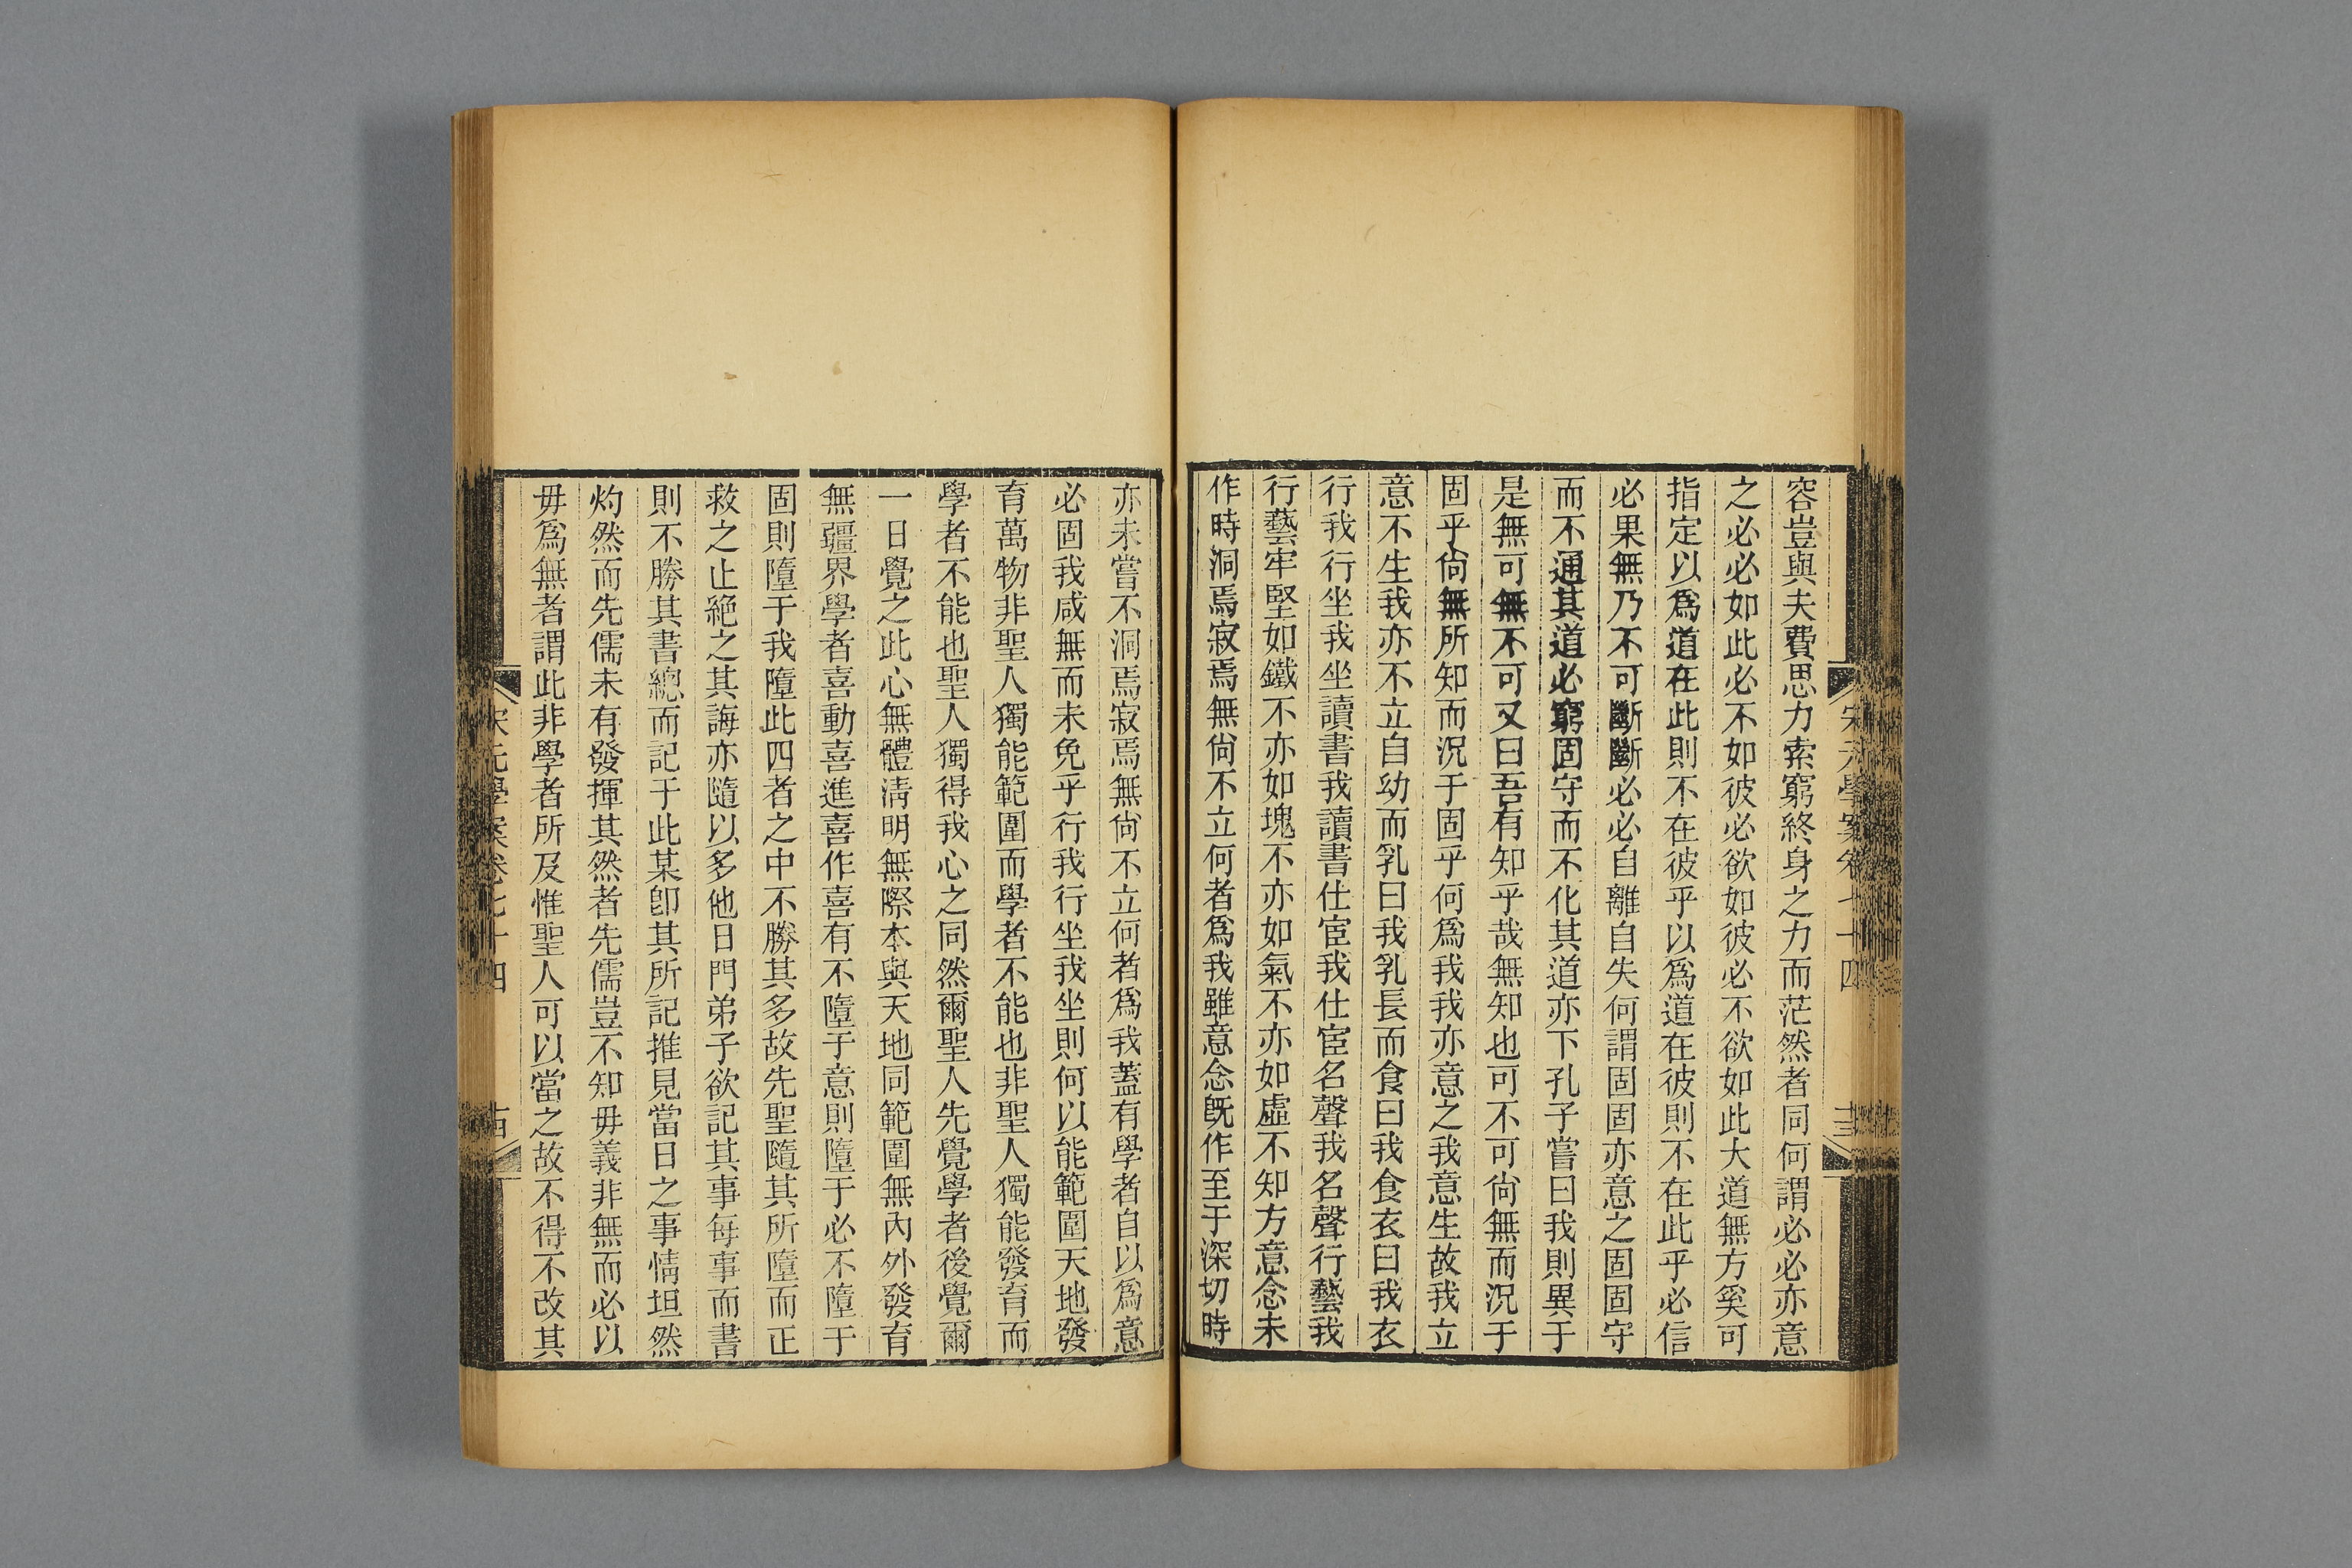 宋元學案卷七十四
十三
容豈與夫費思力索窮終身之力而茫然者同何謂必必亦意
之必必如此必不如彼必欲如彼必不欲如此大道無方奚可
指定以爲道在此則不在彼乎以爲道在彼則不在此乎必信
必果無乃不可斷斷必必自離自失何謂固固亦意之固固守
而不通其道必窮固守而不化其道亦下孔子嘗曰我則異于
是無可無不可又曰吾有知乎哉無知也可不可尙無而況于
固乎尙無所知而況于固乎何爲我我亦意之我意生故我立
意不生我亦不立自幼而乳曰我乳長而食曰我食衣曰我衣
行我行坐我坐讀書我讀書仕宦我仕宦名聲我名聲行藝我
行藝牢堅如鐵不亦如塊不亦如氣不亦如虛不知方意念未
作時洞焉寂焉無尙不立何者爲我雖意念旣作至于深切時
亦未嘗不洞焉寂焉無尙不立何者爲我蓋有學者自以爲意
必固我咸無而未免乎行我行坐我坐則何以能範圍天地發
育萬物非聖人獨能範圍而學者不能也非聖人獨能發育而
學者不能也聖人獨得我心之同然爾聖人先覺學者後覺爾
一日覺之此心無體淸明無際本與天地同範圍無內外發育
無疆界學者喜動喜進喜作喜有不墮于意則墮于必不墮于
固則墮于我墮此四者之中不勝其多故先聖隨其所墮而正
救之止絕之其誨亦隨以多他日門弟子欲記其事每事而書
則不勝其書總而記于此某卽其所記推見當日之事情坦然
灼然而先儒未有發揮其然者先儒豈不知毋義非無而必以
毋爲無者謂此非學者所及惟聖人可以當之故不得不改其
宋元學案卷七十四
十四